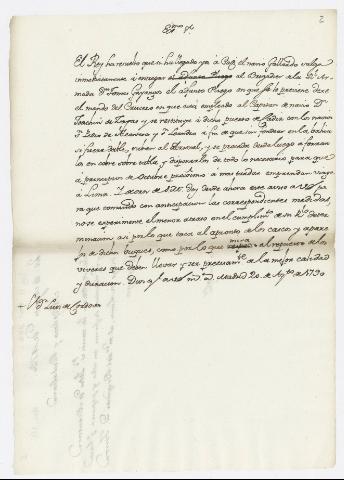 2
Exmo Sr.
El Rey ha resuelto que si ha llegado ya à Cadiz el navio Gallardo valga
inmediatamente à entregar al Brigadier de la Rl. Ar-
mada Dn. Tomas Gayangos el adjunto Pliego en que se le previene dexe
el mando del Crucero en que está empleado al Capitan de navio Dn.
Joachin de Zayas y se restituya à dicho puerto de Cadiz con los navios
Sn. Leandro à fin de que sin fondear en la bahia
si fuere dable, vientran al Arsenal, y se proceda desde luego à forrar-
los en cobre sobre tabla y disponerlos de todo lo necesario para que
à principios de Octubre proximo à mas tardar emprendan viage
à Lima. Y de orden de S.M. doy desde ahora este aviso à V.E. pa-
ra que tomando con anticipacion las correspondientes medidas,
no se experimente el menor atraso en el cumplimto. de su Rl. deter-
minacion asi por lo que toca al apronto de los cascos y apare-
jos de dichos buques, como por lo que mira al repuesto de los
viveres que deben llevar y ser precisamte. de la mejor calidad
y duracion. Dios gue. à V.E. ms. as. Madrid 20. de Agto. de 1790
Sr. Dn. Luis de Cordova